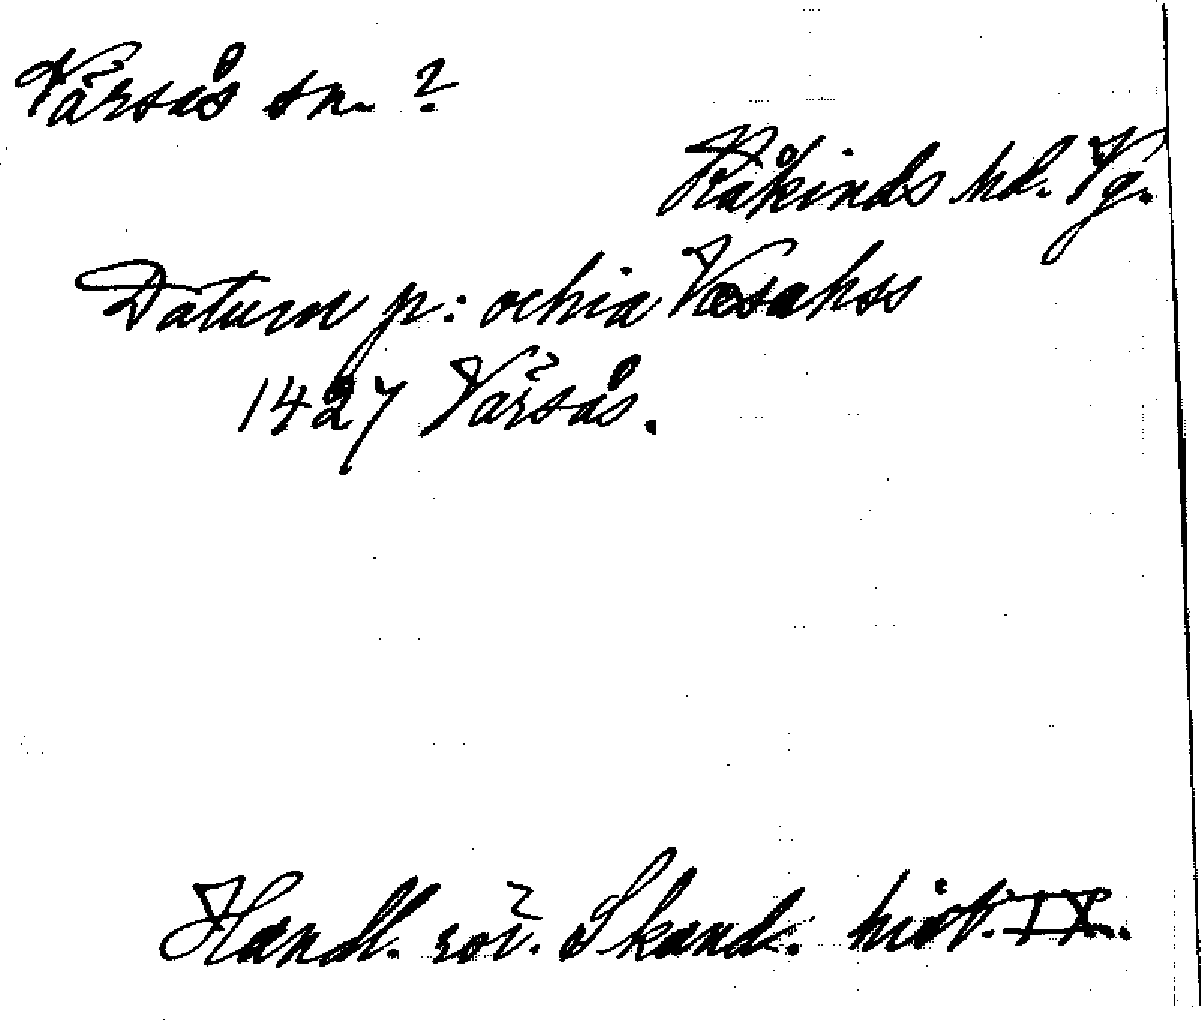 Värsås sn. ?
Kåkinds hd. Vg.
Datum p: ochia Væsahss
1427 Värsås.
Handl. rör. Skand. hist. IX.